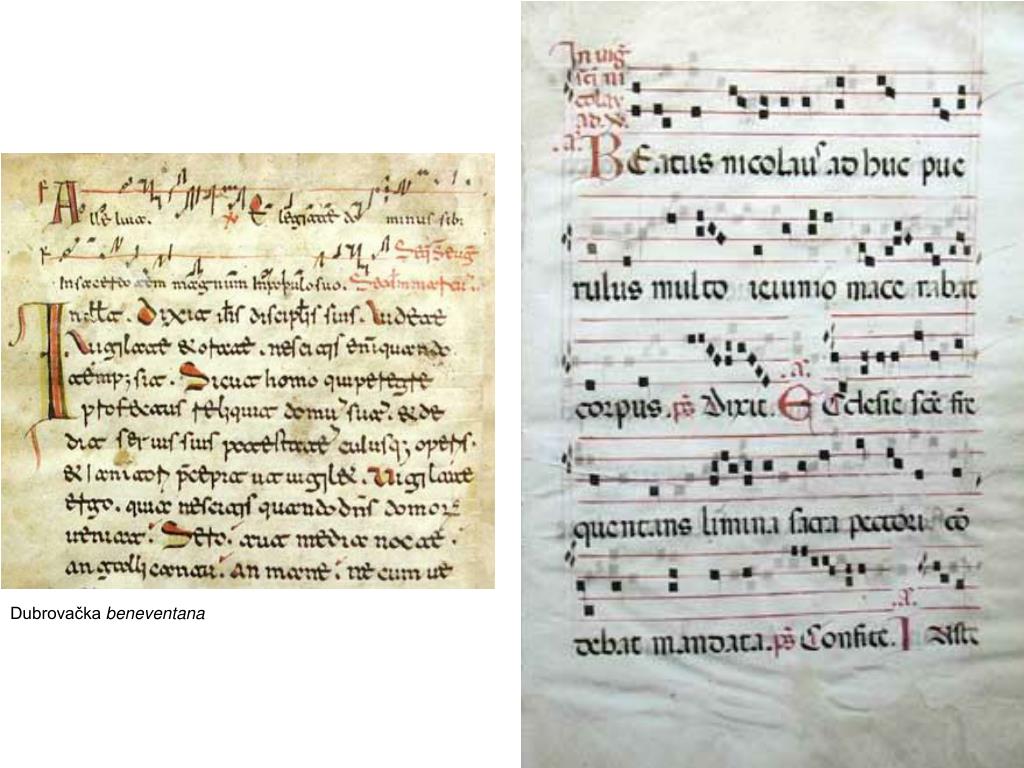 Alleluia. Elegit te dominus sibi
In sacerdotem magnum in populo suo.
Dixit ihs discipulis suis. Videte
Vigilate & orate. nescitis enim quando
tempus sit. Sicut homo qui peregre
profectus reliquit domum suam. & de
dit servis suis potestatem cuiusque operis.
& ianitori precepit ut vigilet. Vigilate
ergo.
veniat. Sero. aut media nocte.
an galli cantu. An mane. ne cum ve
Dubrovačka beneventana
In vig
sci ni
colay
ad
BEatus nicolaus adhuc pue
rulus multo ieiunio mace rabat
corpus. ps Dixit. Ecclesie sce fre
quentans limina sacra pectori co
debat mandata. ps Confite. Iuste